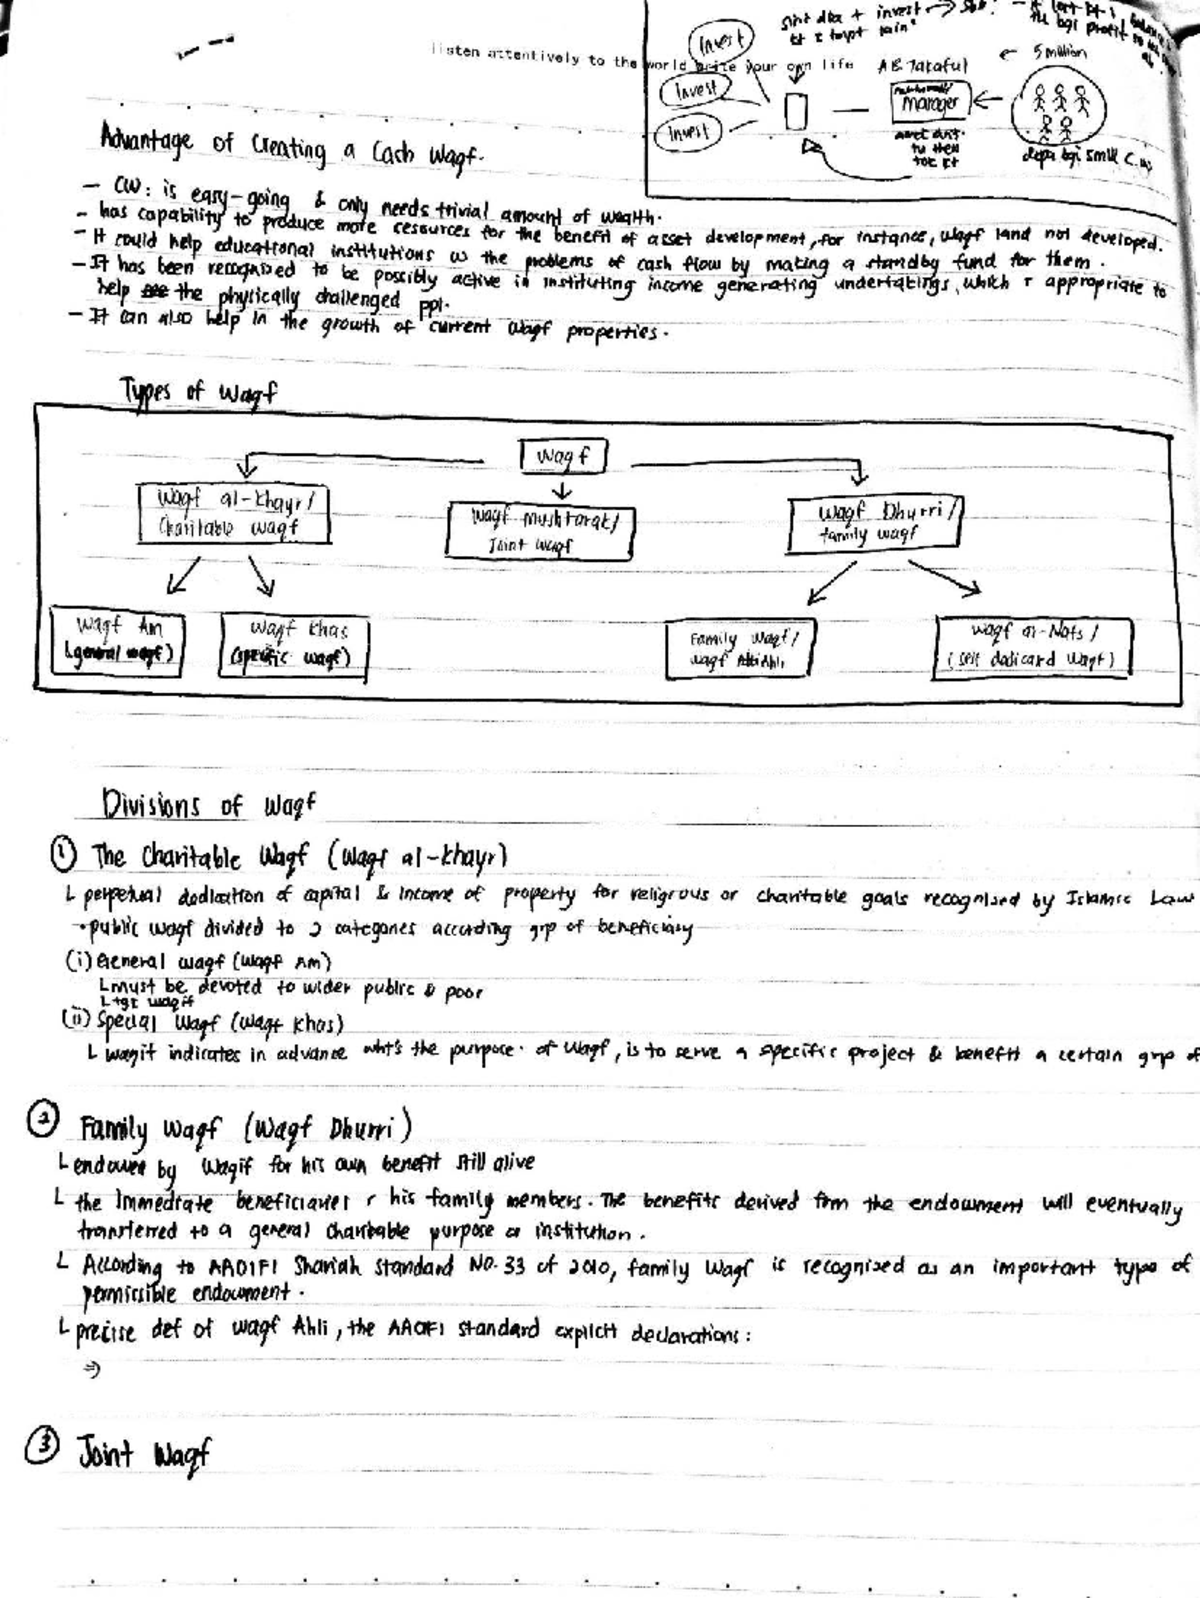 listen attentively to the world write your own life
Invest
Invest
Invest
AB Takaful
manager
5 million
Advantage of Creating a Cash Waqf.
- CW: is easy-going & only needs trivial amount of wealth.
- has capability to produce more resources for the benefit of asset development, for instance, waqf land not developed.
- It could help educational institutions w the problems of cash flow by making a standby fund for them.
- It has been recognised to be possibly active in instituting income generating undertakings, which r appropriate to
help the physically challenged ppl.
- It can also help in the growth of current waqf properties.
Types of Waqf
Waqf
Waqf al-khayr/
Charitable waqf
Waqf Mushtarak/
Joint waqf
Waqf Dhurri/
family waqf
Waqf Am
(general waqf)
Waqf Khas
(specific waqf)
Family Waqf/
waqf
waqf al-Nafs/
(self dedicard waqf)
Divisions of Waqf
① The Charitable Waqf (Waqf al-khayr)
L perpetual dedication of capital & income of property for religious or charitable goals recognised by Islamic Law
• public waqf divided to 2 categories according grp of beneficiary
(i) General waqf (Waqf Am)
L must be devoted to wider public & poor
(ii) Special Waqf (Waqf Khas)
L waqif indicates in advance the purpose of waqf, is to serve a specific project & benefit a certain grp of
② Family Waqf (Waqf Dhurri)
L endower by Waqif for his own benefit still alive
L the immediate beneficiaries r his family members. The benefits derived from the endowment will eventually
transferred to a general charitable purpose or institution.
L According to AAOIFI Shariah Standard No. 33 of 2010, family Waqf is recognised as an important type of
permissible endowment.
L precise def of waqf Ahli, the AAOFI standard explicit declarations:
⇒
③ Joint Waqf